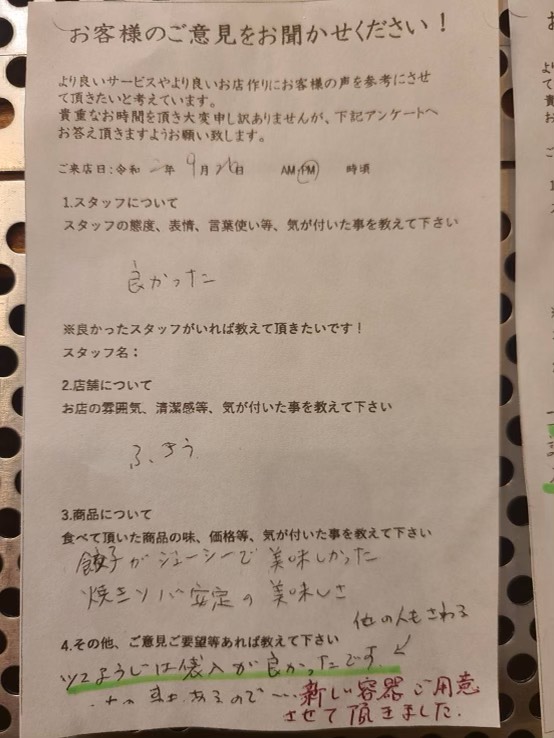 お客様のご意見をお聞かせください！
より良いサービスやより良いお店作りにお客様の声を参考にさせ
て頂きたいと考えています。
貴重なお時間を頂き大変申し訳ありませんが、下記アンケートへ
お答え頂きますようお願い致します。
ご来店日:令和 2年 9月26日 AM・PM 時頃
1.スタッフについて
スタッフの態度、表情、言葉使い等、気が付いた事を教えて下さい
良かった
※良かったスタッフがいれば教えて頂きたいです！
スタッフ名：
2.店舗について
お店の雰囲気、清潔感等、気が付いた事を教えて下さい
ふつう
3.商品について
食べて頂いた商品の味、価格等、気が付いた事を教えて下さい
餃子がジューシーで美味しかった
焼きソバ安定の美味しさ
他の人もさわる
4.その他、ご意見ご要望等あれば教えて下さい
ツマようじは袋入が良かったです
あるので…
新しい容器ご用意
させて頂きました.